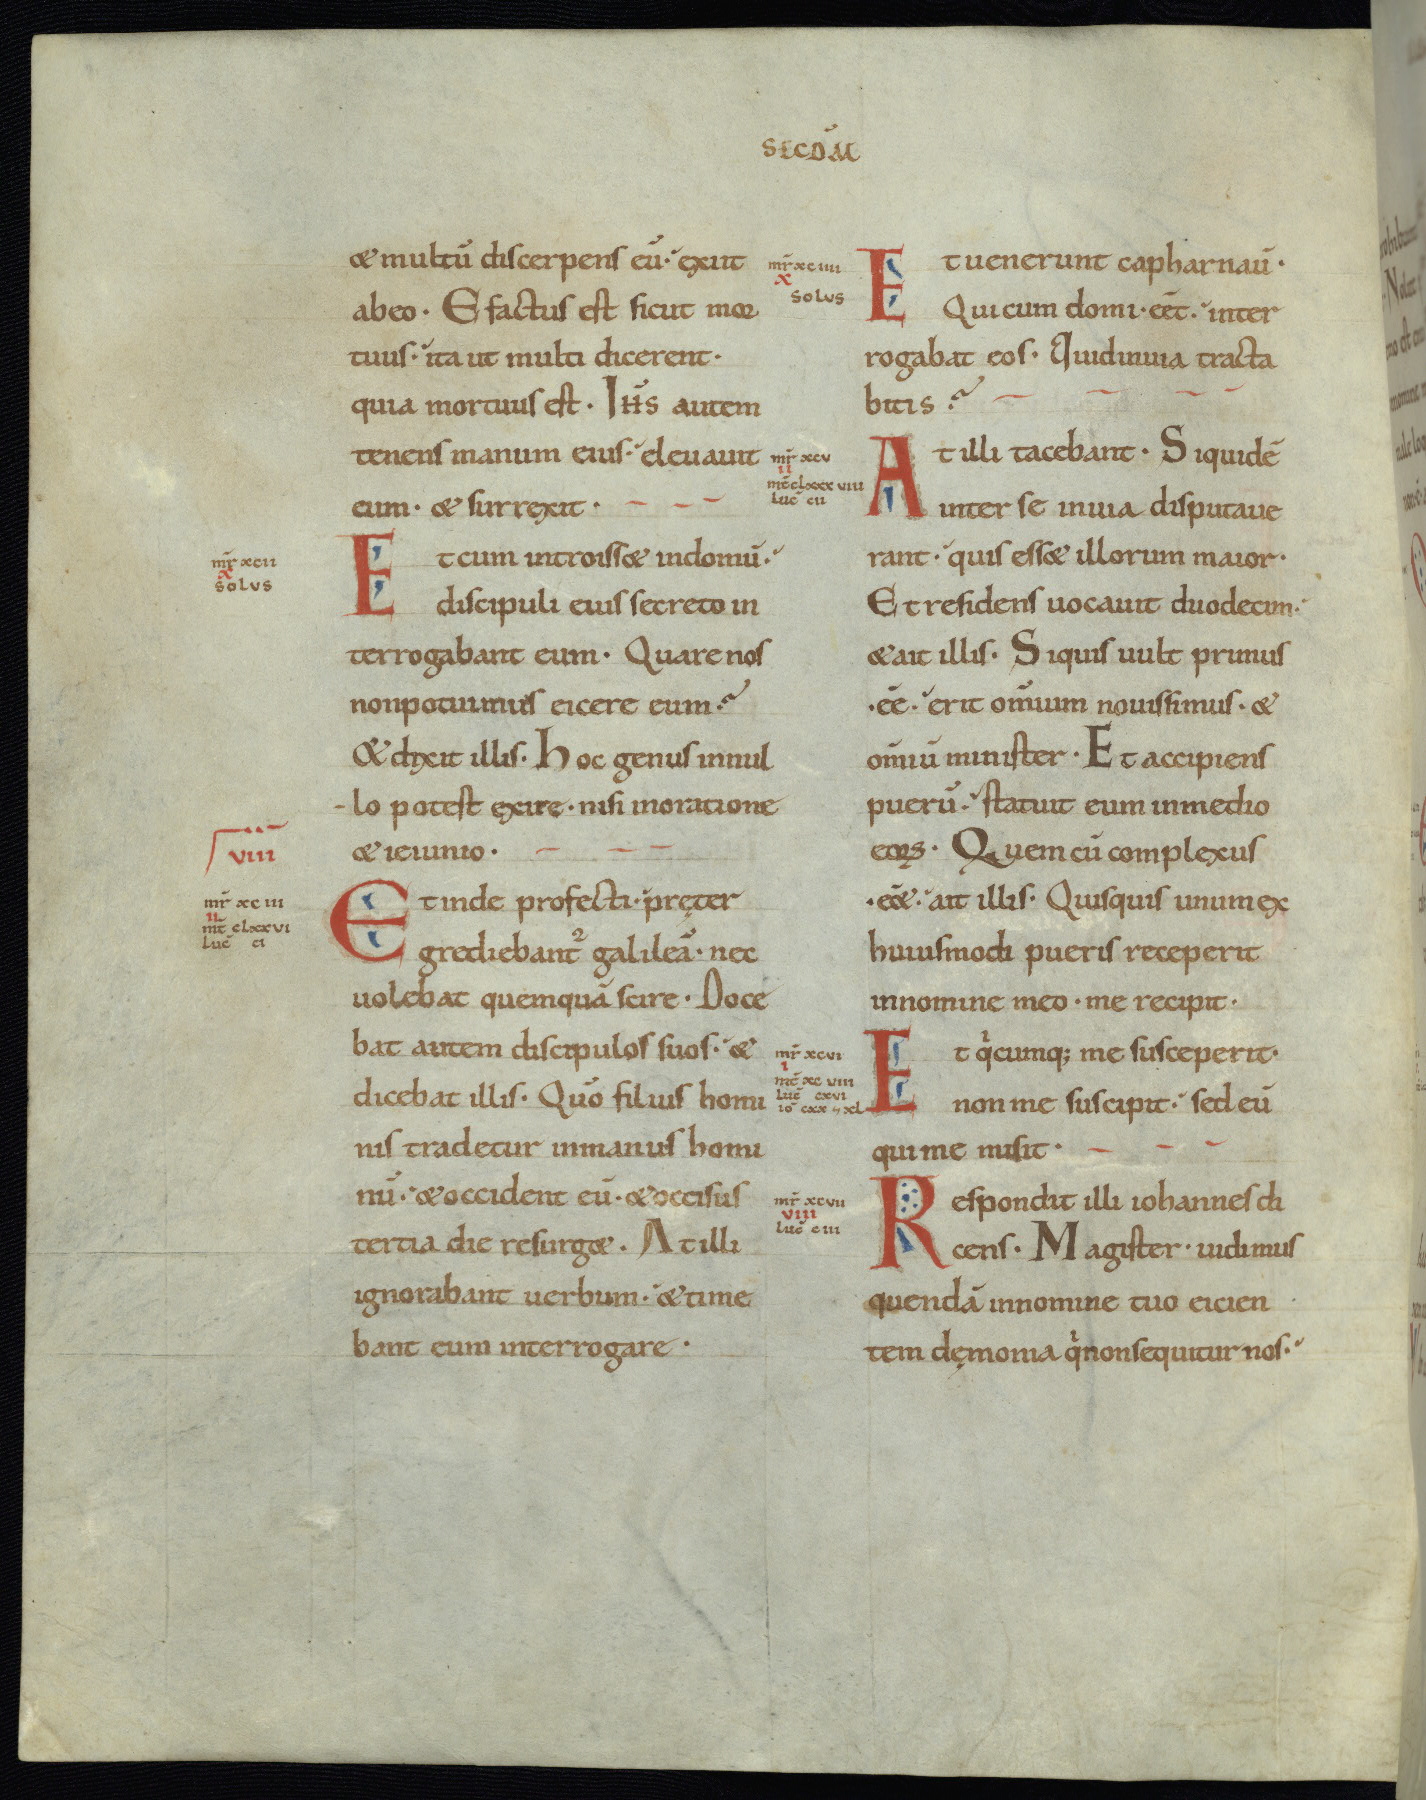 SECDM̄
& multū discerpens eū. exiit
abeo. E factus est sicut mor
tuus. ita ut multi dicerent.
quia mortuus est. Ihs̄ autem
tenens manum eius. eleuauit
eum. & surrexit.
mr̄ xcii
x
solus
Et cum introiss& in domū.
discipuli eius secreto in
terrogabant eum. Quare nos
non potuimus eicere eum.
& dixit illis. Hoc genus in nul
lo potest exire. nisi in oratione
VIII
& ieiunio.
mr̄ xciii
ii
mt̄ clxxvi
luc̄ ci
Et inde profecti. pręter
grediebant᷑ galileā. nec
uolebat quemquā scire. Doce
bat autem discipulos suos. &
dicebat illis. Quō filius homi
nis tradetur in manus homi
nū. & occident eū. & occisus
tertia die resurg&. At illi
ignorabant uerbum. & time
bant eum interrogare.
mr̄ xciiii
x
solus
Et uenerunt capharnaū.
Qui cum domi. eēt. inter
rogabat eos. Quid in uia tracta
bitis?
mr̄ xcv
ii
mt̄ clxxxviii
luc̄ cii
At illi tacebant. Siquidē
inter se in uia disputaue
rant. quis ess& illorum maior.
Et residens uocauit duodecim.
& ait illis. Siquis uult primus
.eē. erit om̄ium nouissimus. &
om̄iū minister. Et accipiens
puerū. statuit eum in medio
eoꝝ. Quem cū complexus
.eēt. ait illis. Quisquis unum ex
huiusmodi pueris receperit
in nomine meo. me recipit.
mr̄ xcvi
i
mt̄ xcviii
luc̄ cxvi
io cxx & xl
Et qͥcumq; me susceperit.
non me suscipit. sed eū
qui me misit.
mr̄ xcvii
viii
luc̄ ciii
Respondit illi iohannes di
cens. Magister. uidimus
quendā in nomine tuo eicien
tem dęmonia qͥ non sequitur nos.